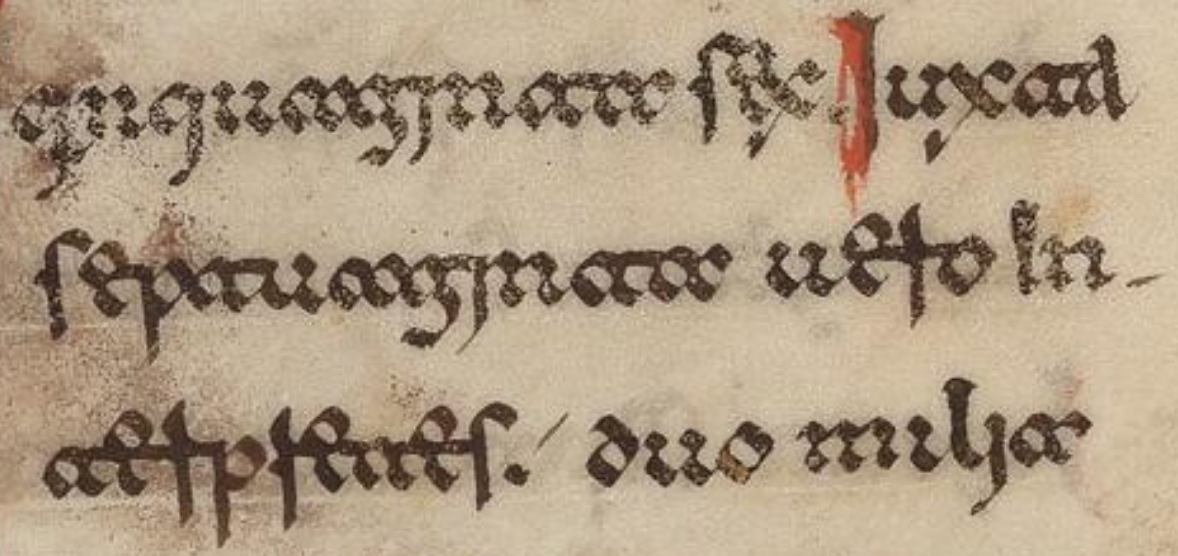 cinquaginta sex. Iuxta
septuaginta uero In-
terpretes. duo milia